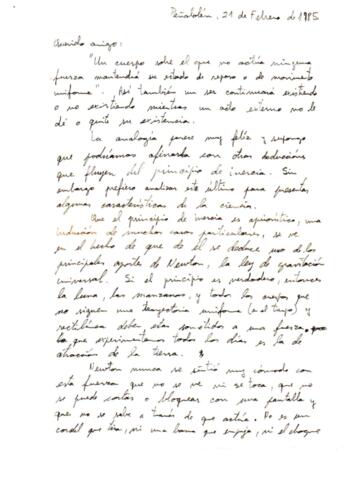 Peñalolén, 21 de Febrero de 1985
Querido amigo:
"Un cuerpo sobre el que no actúa ninguna
fuerza mantendrá su estado de reposo o de movimiento
uniforme". Así también un ser continuará existiendo
o no existiendo mientras un acto externo no le
dé o quite su existencia.
La analogía parece muy feliz y supongo
que podríamos afinarla con otras deducciones
que fluyen del principio de inercia. Sin
embargo prefiero analizar este último para presentar
algunas características de la ciencia.
Que el principio de inercia es apriorístico, una
inducción de muchos casos particulares, se ve
en el hecho de que de él se deduce uno de los
principales aportes de Newton, la ley de gravitación
universal. Si el principio es verdadero, entonces
la luna, las manzanas, y todos los cuerpos que
no siguen una trayectoria uniforme y
rectilínea deben estar sometidos a una fuerza,
la que experimentamos todos los días es la de
atracción de la tierra.
Newton nunca se sintió muy cómodo con
esta fuerza que no se ve ni se toca, que no
se puede cortar o bloquear con una pantalla y
que no se sabe a través de que actúa. No es un
cordel que tira, ni una barra que empuja, ni el choque